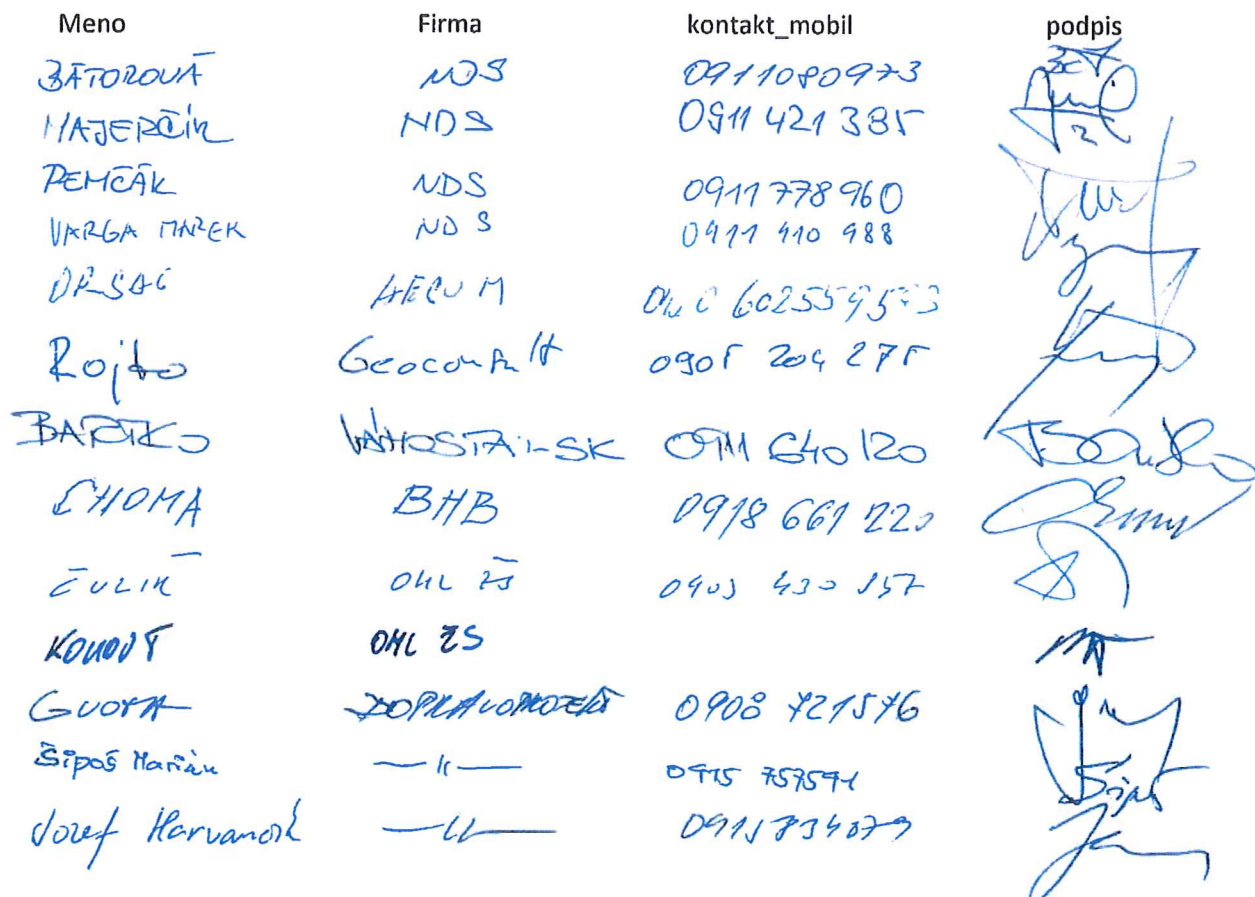 Meno Firma kontakt_mobil podpis
BÁTOROVÁ NDS 0911080973
MAJERČÍK NDS 0911 421 385
PEMČÁK NDS 0911 778 960
VARGA MAREK NDS 0911 410 988
AECOM
Rojko Geoconsult 0905 204 275
BARTKO VÁHOSTAV-SK 0911 640 120
CHOMA BHB 0918 661 220
ČULÍK OHL ŽS
OHL ŽS
DOPRAVOPROJEKT 0908 721576
Šipoš Marián — 〃 — 0915 757591
Jozef Harvančík — 〃 —